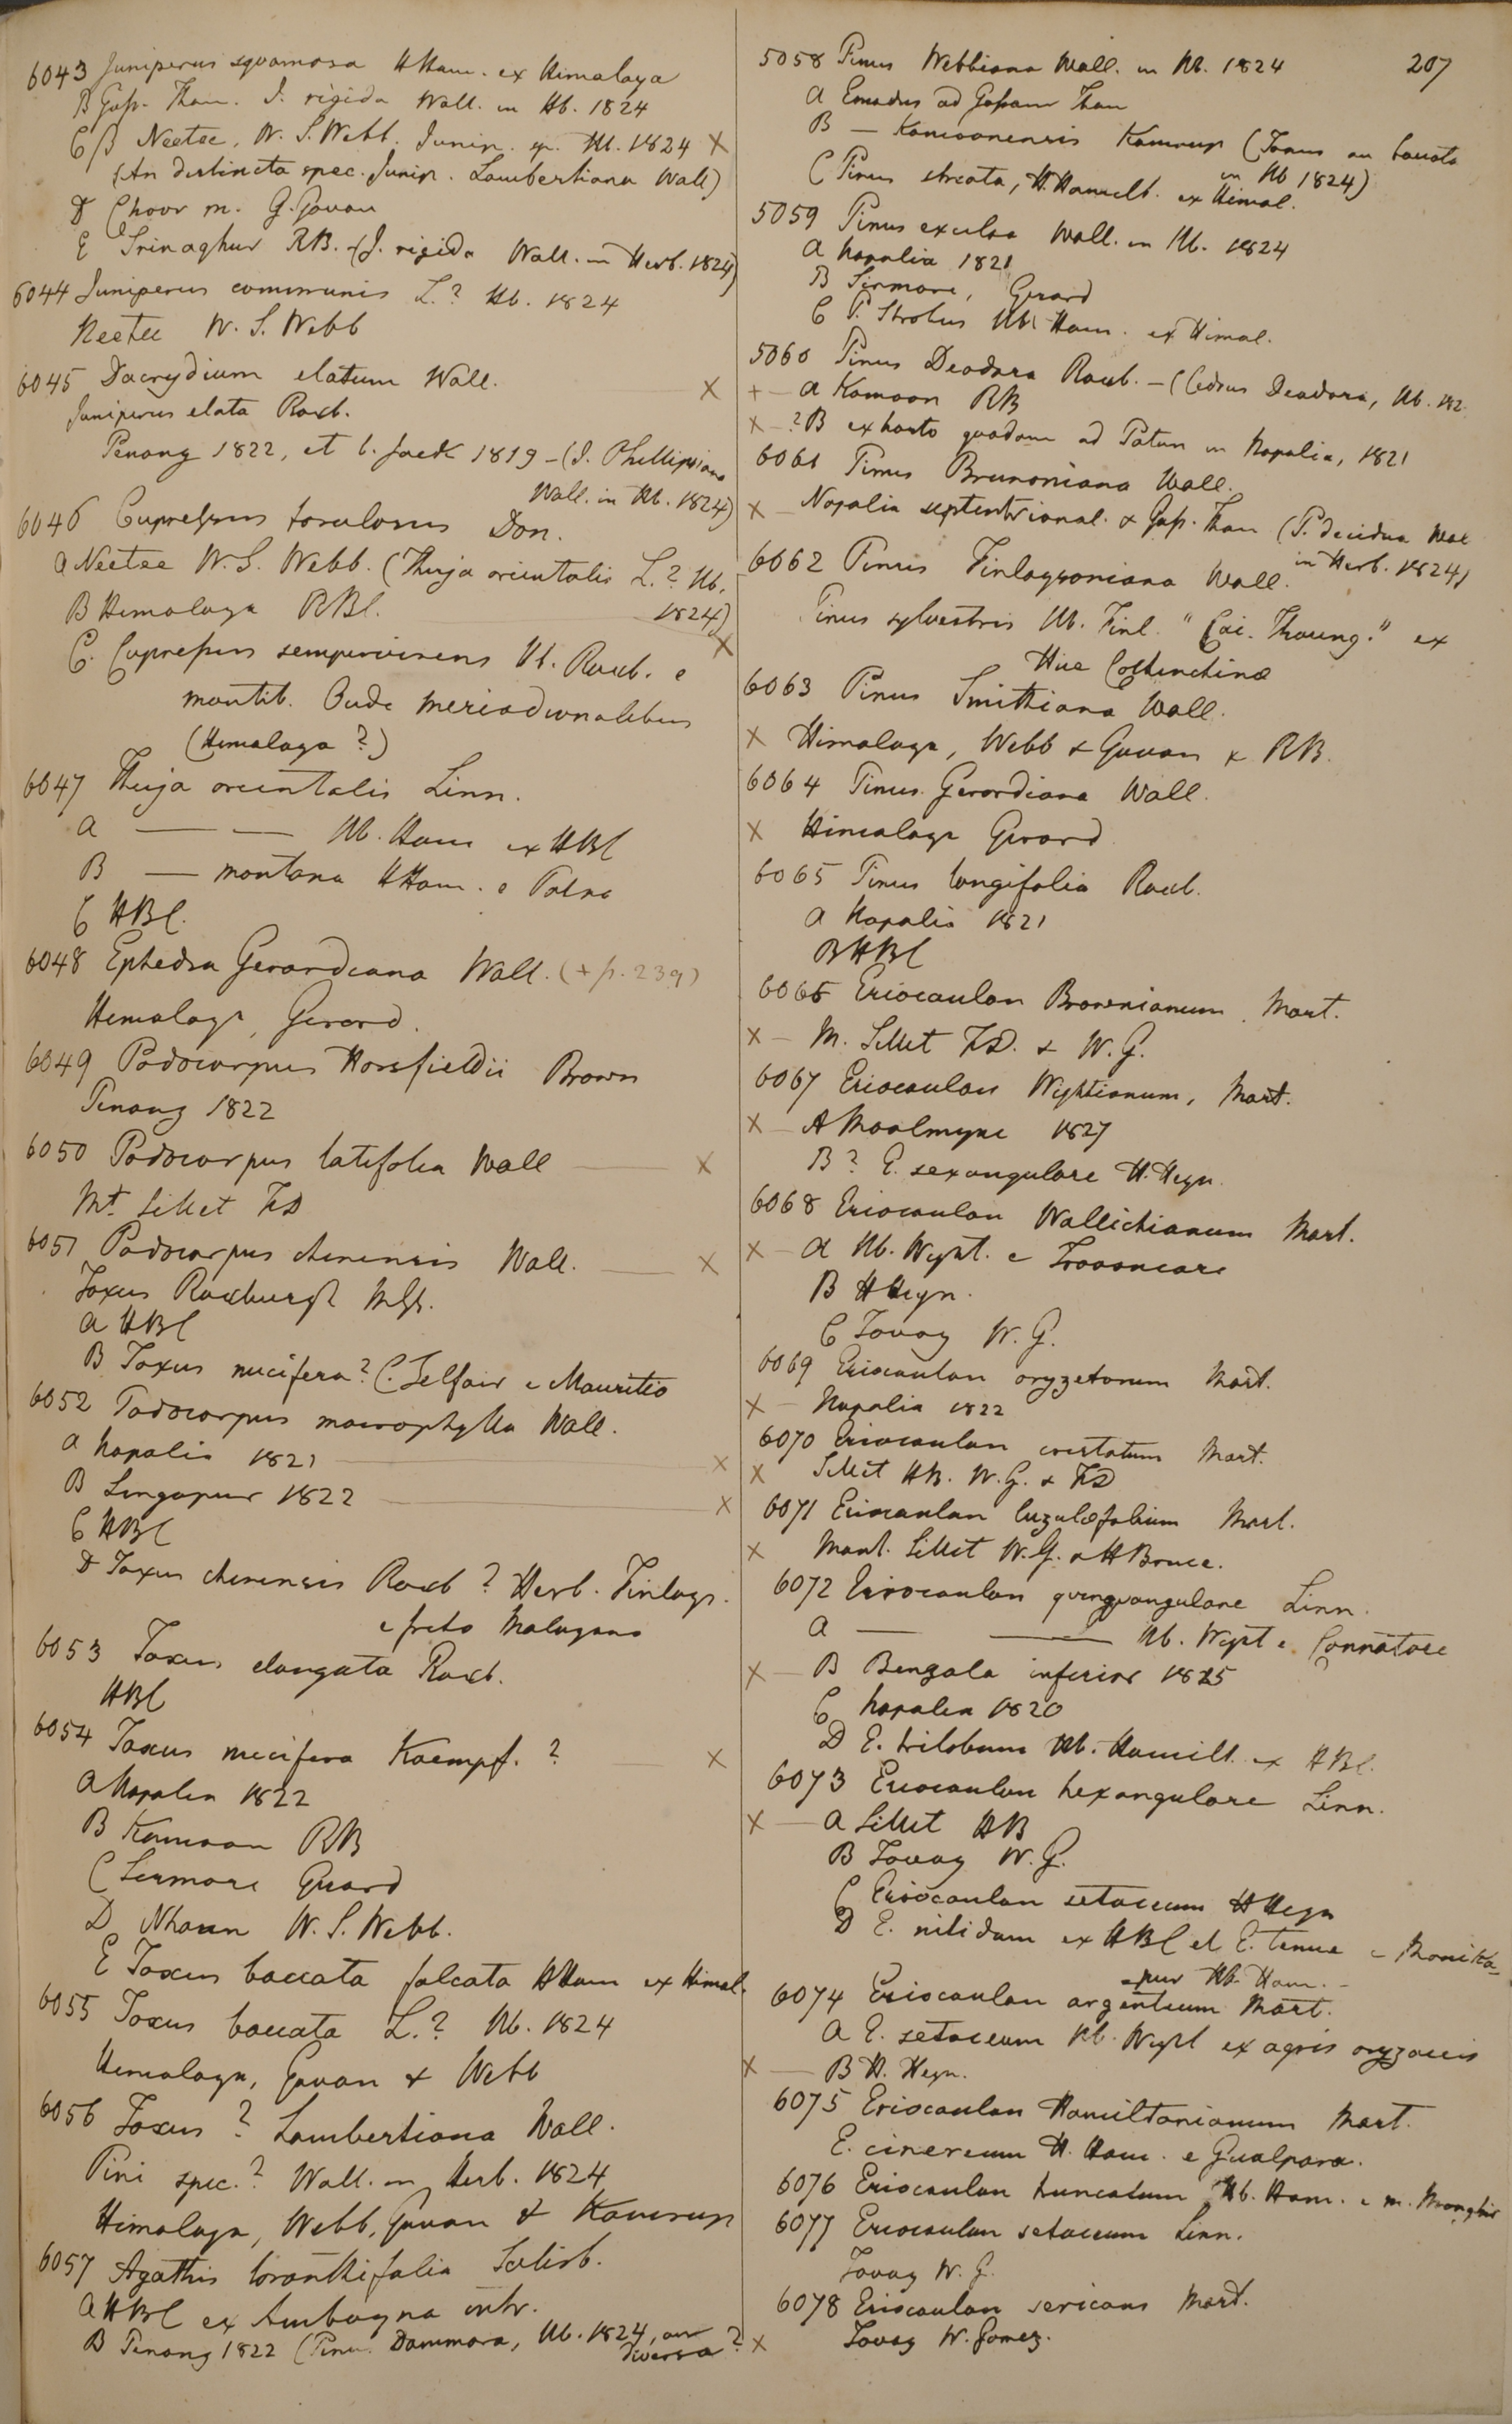 6043 Juniperus squamosa HHam. ex Himalaya
B Goss. Than. J. rigida Wall. in Hb. 1824
C/β Neetee, W. S. Webb. Junip. sp. Hb. 1824 X
(An distincta spec. Junip. Lambertiana Wall)
D Choor m. G. Govan
E Srinaghur RB. (J. rigida Wall. in Herb. 1824)
6044 Juniperus communis L.? Hb. 1824
Neetee W. S. Webb
6045 Dacrydium elatum Wall. X
Juniperus elata Roxb.
Penang 1822, et G. Jack 1819 - (J. Philippiana
Wall. in Hb. 1824)
6046 Cupressus torulosus Don.
a Neetee W. S. Webb. (Thuja orientalis L.? Hb.
1824)
B Himalaya RBl. X
C. Cupressus sempervirens Hb. Roxb. e
montib. Oude meridionalibus
(Himalaya?)
6047 Thuja orientalis Linn.
a — — Hb. Ham ex HBC
B — montana HHam. e Patna
C HBC.
6048 Ephedra Gerardiana Wall. (+ p. 239)
Himalaya, Gerard.
6049 Podocarpus Horsfieldii Brown
Penang 1822
6050 Podocarpus latifolia Wall — X
Mt. Sillet FD
6051 Podocarpus chinensis Wall. — X
Taxus Roxburgh Mss.
a HBC
B Taxus nucifera? C. Telfair e Mauritio
6052 Podocarpus macrophylla Wall.
a Napalia 1821 — X
B Singapur 1822 — X
C HBC
D Taxus chinensis Roxb? Herb. Finlays.
e freto Malayano
6053 Taxus elongata Roxb.
HBC
6054 Taxus nucifera Kaempf.? — X
a Napalia 1822
B Kamoon RB
C Sermore Gerard
D Nhann W. S. Webb.
E Taxus baccata falcata HHam ex Himal.
6055 Taxus baccata L.? Hb. 1824
Himalaya, Govan & Webb
6056 Taxus? Lambertiana Wall.
Pini spec.? Wall. in Herb. 1824
Himalaya, Webb, Govan & Kamrup
6057 Agathis loranthifolia Salisb.
a HBC ex Amboyna intr.
B Penang 1822 (Pinus Dammara, Hb. 1824, an
diversa?
5058 Pinus Webbiana Wall. in Hb. 1824 207
a Emodus ad Gossain Than
B — Kamoonensis Kamrup (Taxus an baccata
in Hb 1824)
C Pinus striata, H. Hamilt. ex Himal.
5059 Pinus excelsa Wall. in Hb. 1824
a Napalia 1821
B Sirmore, Gerard
C P. Strobus Hb. Ham. ex Himal.
5060 Pinus Deodara Roxb. - (Cedrus Deodara, Hb. 182
+ — a Kamoon RB
X — ?B ex horto quodam ad Patan in Napalia, 1821
6061 Pinus Brunoniana Wall.
X — Napalia septentrional. & Goss. Than (P. decidua Wall
in Herb. 1824)
6062 Pinus Finlaysoniana Wall.
Pinus sylvestris Hb. Finl. "Cai. Thoung." ex
Hue Cochinchinæ
6063 Pinus Smithiana Wall.
X Himalaya, Webb & Govan & RB.
6064 Pinus Gerardiana Wall.
X Himalaya Gerard
6065 Pinus longifolia Roxb.
a Napalia 1821
B HBC
6066 Eriocaulon Brownianum Mart.
X — M. Sillet FD. & W. G.
6067 Eriocaulon Wightianum, Mart.
X — A Moalmyne 1827
B? E. sexangulare H. Heyn.
6068 Eriocaulon Wallichianum Mart.
X — a Hb. Wight. e Travancore
B HHeyn.
C Tavoy W. G.
6069 Eriocaulon oryzetorum Mart.
X — Napalia 1822
6070 Eriocaulon cristatum Mart.
X Sillet HB. W. G. & FD
6071 Eriocaulon luzulæfolium Mart.
X Mont. Sillet W. G. & HBruce.
6072 Eriocaulon quinquangulare Linn.
a — — Hb. Wight e
X — B Bengala inferior 1825
C Napalia 1820
D E. trilobum Hb. Hamilt. ex HBC.
6073 Eriocaulon hexangulare Linn.
X — a Sillet HB
B Tavoy W. G.
C Eriocaulon setaceum HHeyn
D E. nitidum ex HBC et E. tenue e Monika-
-pur Hb. Ham.
6074 Eriocaulon argenteum Mart.
a E. setaceum Hb. Wight ex agris oryzaceis
X — B H. Heyn.
6075 Eriocaulon Hamiltonianum Mart.
E. cinereum H. Ham. e Gualpara.
6076 Eriocaulon truncatum Hb. Ham. e m. Monghir
6077 Eriocaulon setaceum Linn.
Tavoy W. G.
6078 Eriocaulon sericans Mart.
X Tavoy W. Gomez.